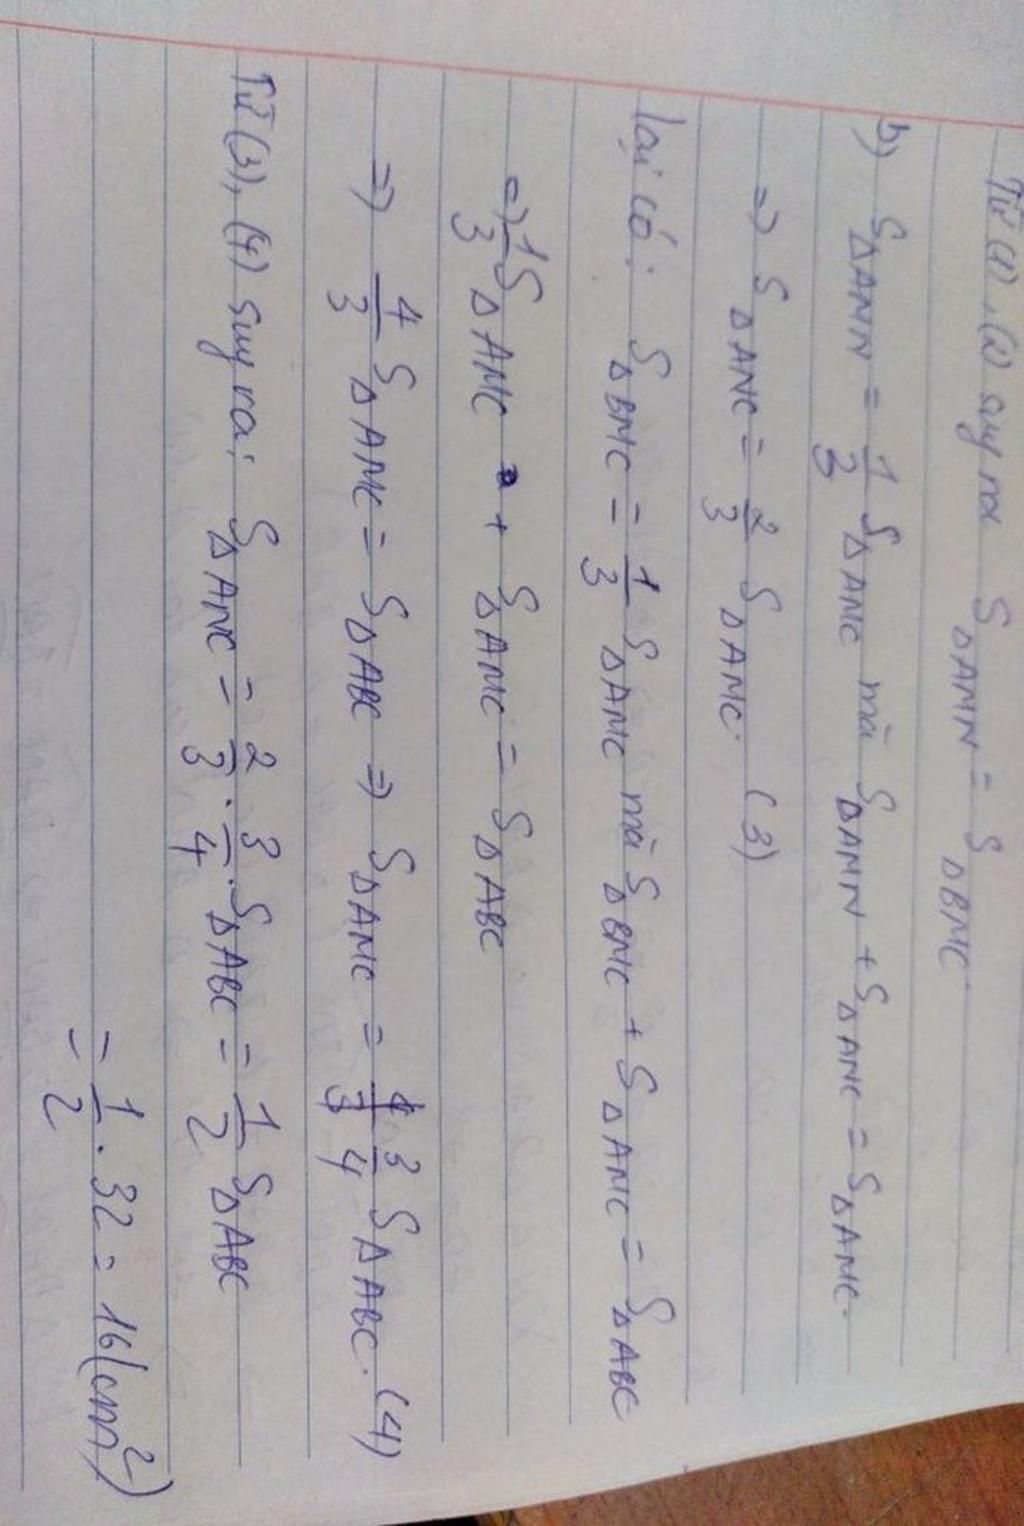 Từ (1), (2) suy ra S∆AMN = S∆BMC.
b) S∆AMN = 1/3 S∆AMC mà S∆AMN + S∆ANC = S∆AMC.
=) S∆ANC = 2/3 S∆AMC. (3)
lại có: S∆BMC = 1/3 S∆AMC mà S∆BMC + S∆AMC = S∆ABC
=) 1/3 S∆AMC + S∆AMC = S∆ABC
=) 4/3 S∆AMC = S∆ABC =) S∆AMC = 3/4 S∆ABC. (4)
Từ (3), (4) suy ra: S∆ANC = 2/3 . 3/4 . S∆ABC = 1/2 S∆ABC
= 1/2 . 32 = 16 (cm²)